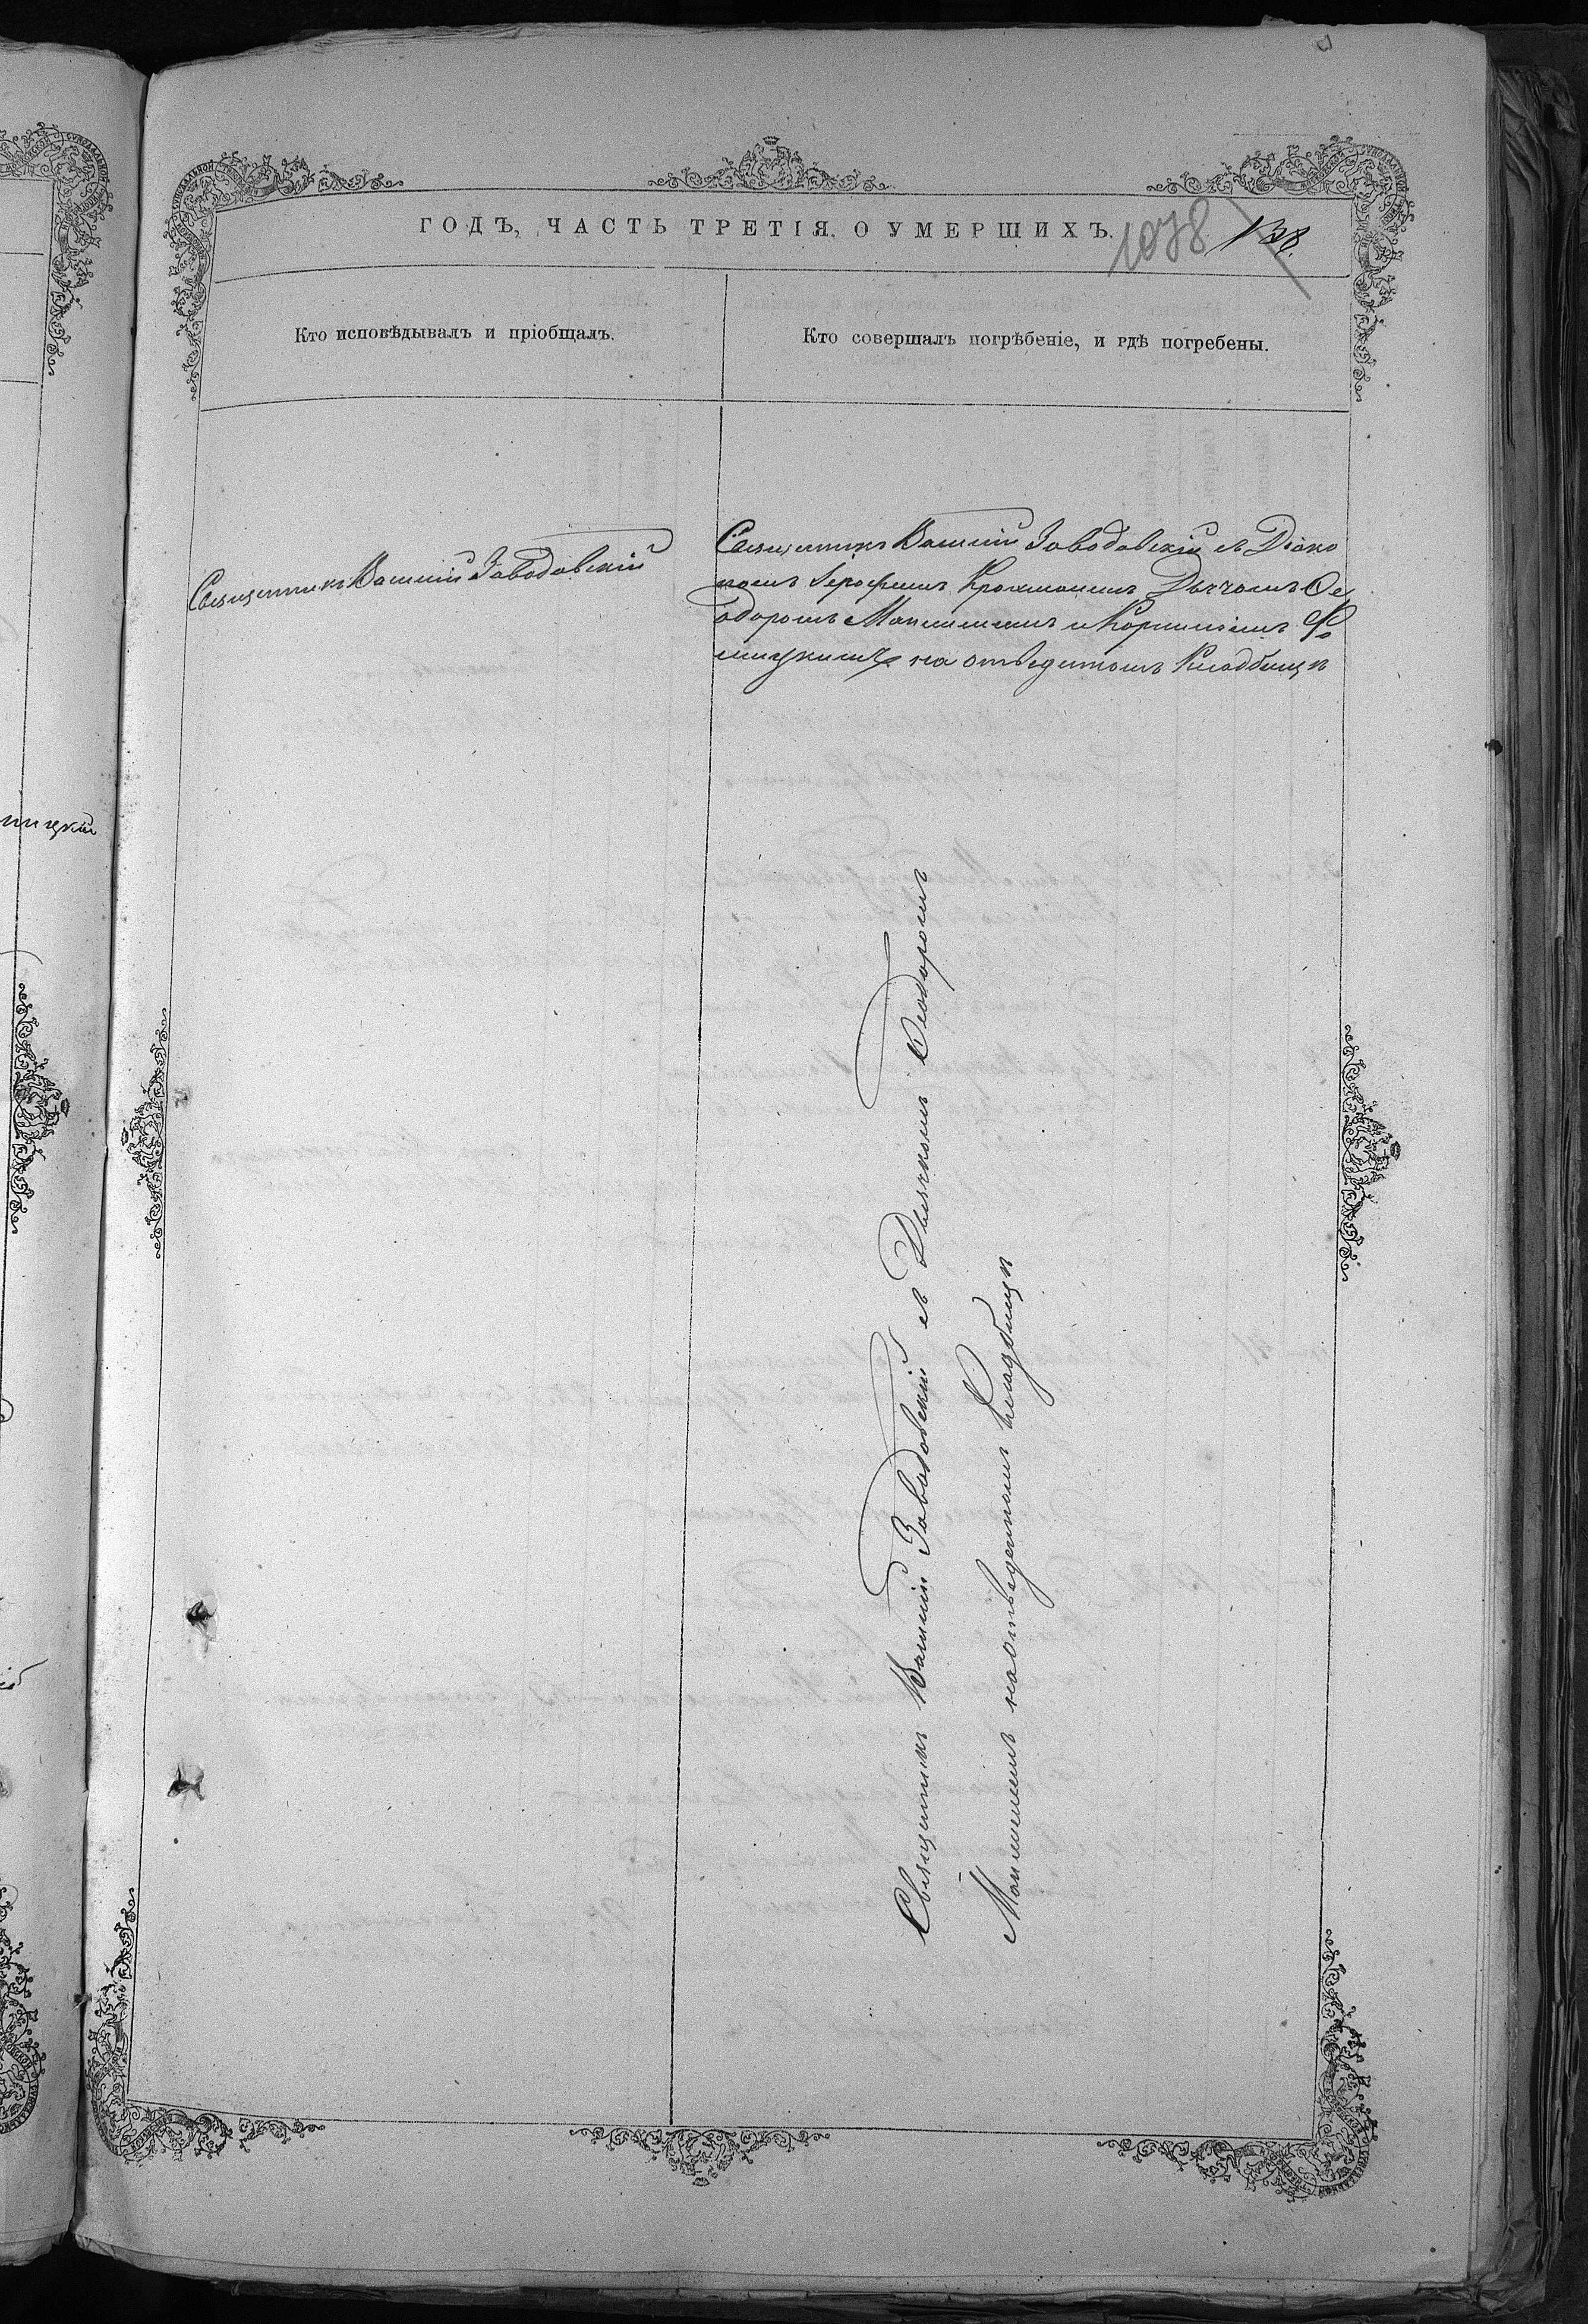 ГОДЪ, ЧАСТЬ ТРЕТІЯ, О УМЕРШИХЪ.
1078 138.
Кто исповѣдывалъ и пріобщалъ.
Кто совершалъ погрѣбеніе, и гдѣ погребены.
Священникъ Василій Заводовскій
Священникъ Василій Заводовскій съ Діако
номъ Іерофеемъ Дьячкомъ Ѳе
одоромъ и Корниліемъ
на отведенномъ Кладбищѣ
Священникъ Василій Заводовскій съ Дьячкомъ Ѳеодоромъ
на отведенномъ Кладбищѣ
ницкій